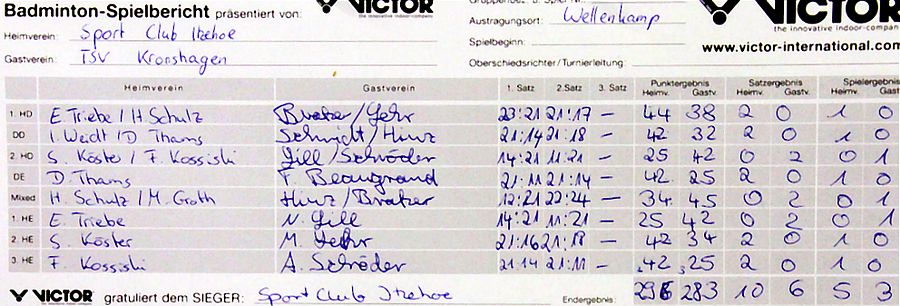 Badminton-Spielbericht präsentiert von: VICTOR
the innovative indoor-company
Heimverein: Sport Club Itzehoe
Gastverein: TSV Kronshagen
Austragungsort: Wellenkamp
Spielbeginn:
Oberschiedsrichter/Turnierleitung:
VICTOR
the innovative indoor-company
www.victor-international.com
Heimverein Gastverein 1. Satz 2. Satz 3. Satz Punktergebnis Heimv. Gastv. Satzergebnis Heimv. Gastv. Spielergebnis Heimv. Gastv.
1. HD E Triebe / H Schulz Braker/Gehr 23:21 21:17 – 44 38 2 0 1 0
DD I. Weidt / D Thams Schmidt/Hinz 21:14 21:18 – 42 32 2 0 1 0
2. HD S. Köster / F. Kossiski Gill/Schröder 14:21 11:21 – 25 42 0 2 0 1
DE D. Thams F. Beaugrand 21:11 21:14 – 42 25 2 0 1 0
Mixed H. Schulz / M. Groth Hinz/Braker 12:21 22:24 – 34 45 0 2 0 1
1. HE E. Triebe N. Gill 14:21 11:21 – 25 42 0 2 0 1
2. HE S. Köster M. Gehr 21:16 21:18 – 42 34 2 0 1 0
3. HE F. Kossiski A. Schröder 21:14 21:11 – 42 25 2 0 1 0
VICTOR gratuliert dem SIEGER: Sport Club Itzehoe Endergebnis: 296 283 10 6 5 3